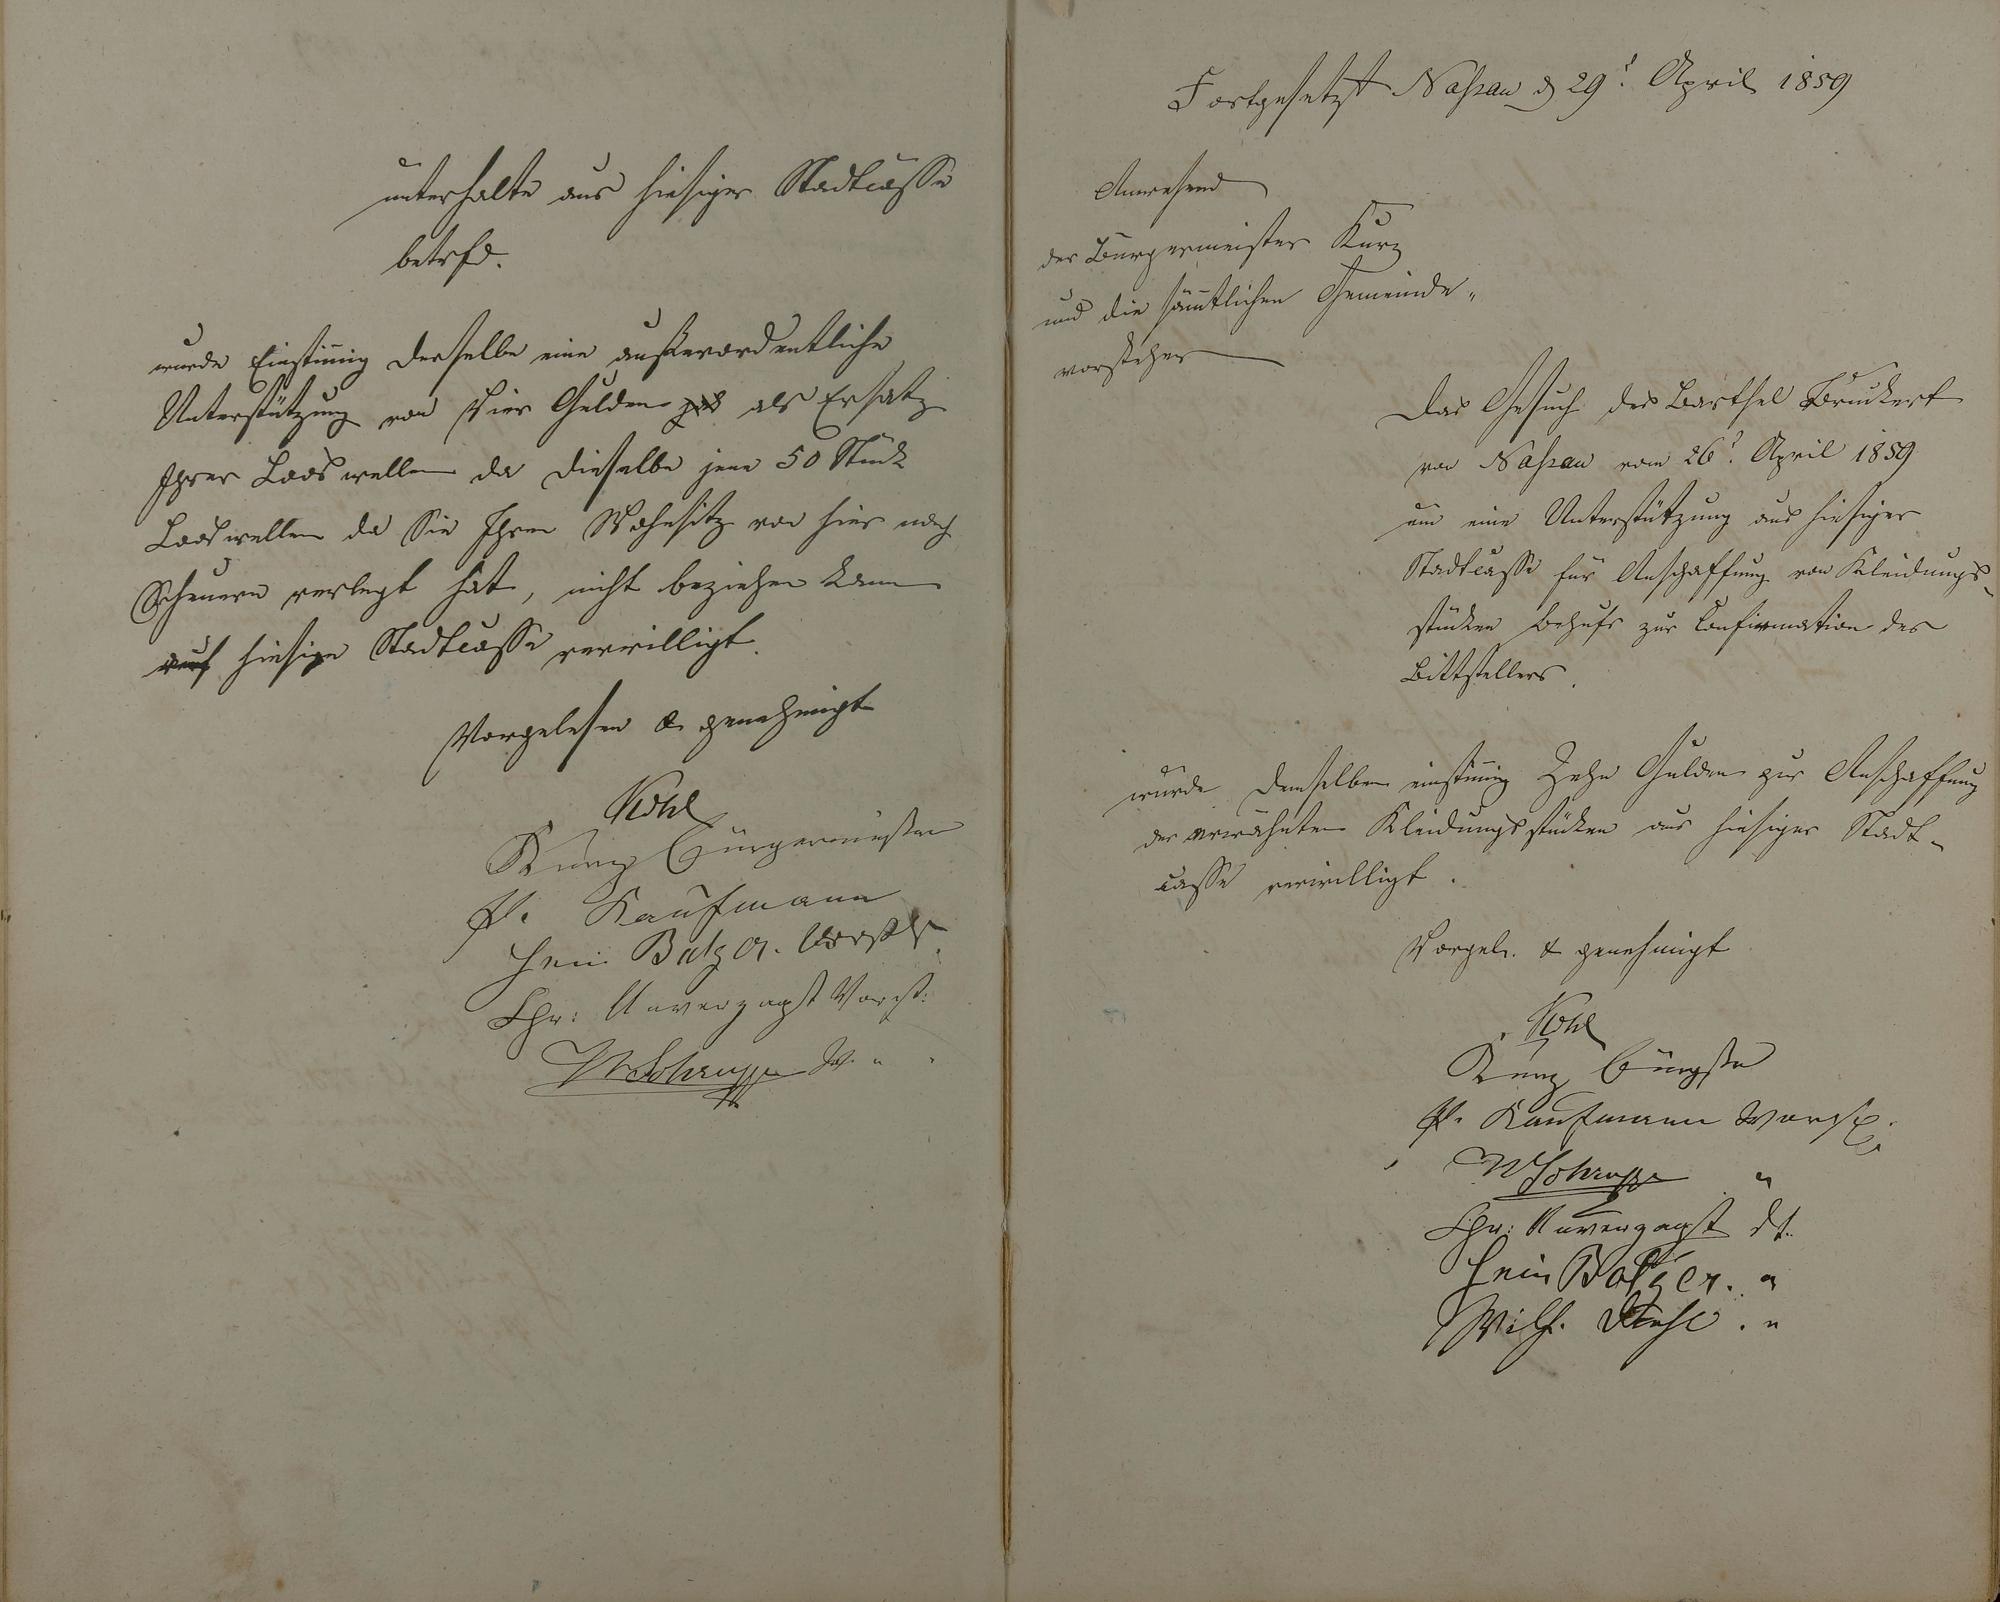 unterhalte aus hiesiger Stadtcasse
betrfd.
wurde Einstimig derselbe eine außerordentliche
Unterstützung von Vier Gulden als Ersatz
Ihrer Looswellen da dieselbe jene 50 Stück
Looswellen da Sie Ihren Wohnsitz von hier nach
Scheuern verlegt hat, nicht beziehen kann
auf hiesige Stadtcasse verwilligt.
Vorgelesen & genehmigt
Kurz Bürgermeister
Ph. Kaufmann
Hein Balzer. Vorsth
Chr: Unverzagt Vorst:
W Schrupp
Fortgesetzt Nassau d 29t. April 1859
Anwesend
der Bürgermeister Kurz
und die sämtlichen Gemeinde„
vorsteher
Das Gesuch des Barthel Bruckert
von Nassau vom 26t. April 1859
um eine Unterstützung aus hiesiger
Stadtcasse für Anschaffung von Kleidungs-
stücken Behufs zur Confirmation des
Bittstellers.
wurde demselben einstimig Zehn Gulden zur Anschaffung
der erwähnten Kleidungsstücken aus hiesiger Stadt-
casse verwilligt.
Vorgel. & genehmigt
Kurz Bürgstr
Ph. Kaufmann Vorsth.
W Schrupp "
Chr: Unverzagt dt.
Hein Balzer. "
Wilh. Diehl. "